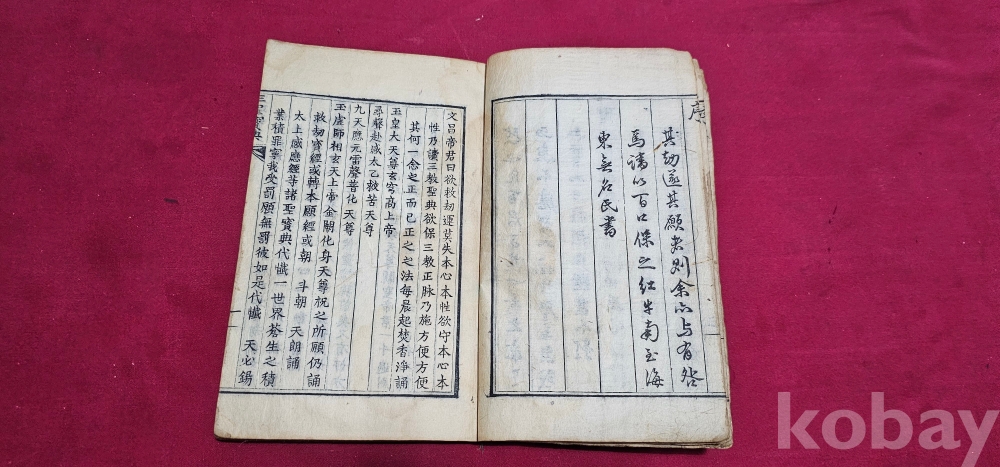 序
其劫遂其願者則余亦与有咎
焉請以百口保之紅牛南至海
東無名民書
文昌帝君曰欲救劫運莫失本心本性欲守本心本
性乃讀三教聖典欲保三教正脉乃施方便方便
其何一念之正而已正之之法每晨起焚香淨誦
玉皇大天尊玄穹高上帝
尋聲赴感太乙救苦天尊
九天應元雷聲普化天尊
玉虛師相玄天上帝金闕化身天尊祝之所願仍誦
救劫寶經或轉本願經或朝 斗朝 天朗誦
太上感應經等諸聖寶典代懺一世界蒼生之積
業積罪寧我受罰願無罰彼如是代懺 天必錫
kobay